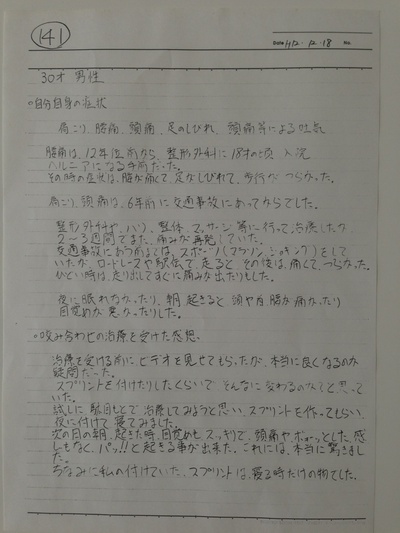 141
DATE H12・12・18 NO.
30才 男性
○自分自身の症状
肩こり、腰痛、頭痛、足のしびれ、頭痛等による吐気
腰痛は、12年位前から、整形外科に18才の頃 入院
ヘルニアになる手前だった。
その時の症状は、腰が痛くて、足がしびれて、歩行がつらかった。
肩こり、頭痛は、6年前に交通事故にあってからでした。
整形外科や、ハリ、整体、マッサージ等に行って治療したが
2〜3週間でまた、痛みが再発していた。
交通事故にあう前までは、スポーツ(マラソン、ジョギング)をして
いたが、ロードレースや駅伝で走ると、その後は、痛くて、つらかった。
ひどい時は、走り出してすぐに痛みが出たりもした。
夜に眠れなかったり、朝起きると頭や肩腰が痛かったり
目覚めが悪かったりした。
○咬み合わせの治療を受けた感想。
治療を受ける前に、ビデオを見せてもらったが、本当に良くなるのか
疑問だった。
スプリントを付けたりしたくらいで そんなに変わるのかなと思って
いた。
試しに、駄目もとで治療してみようと思い、スプリントを作ってもらい、
夜に付けて寝てみました。
次の日の朝、起きた時、目覚めもスッキリで、頭痛やボーッとした感
じもなく、パッ!!と起きる事が出来た。これには、本当に驚きまし
た。
ちなみに私の付けていた、スプリントは、寝る時だけの物でした。